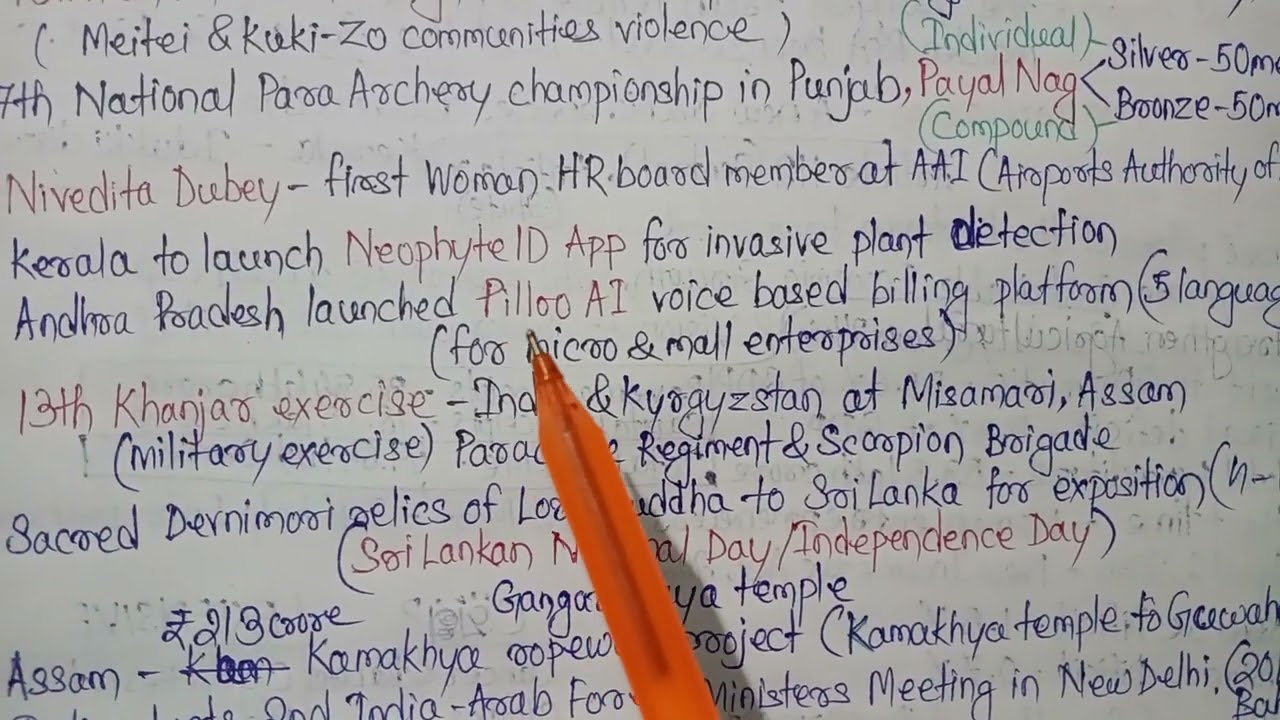 ( Meitei & Kuki-Zo communities violence )
(Individual) Silver-50m
7th National Para Archery championship in Punjab, Payal Nag
Bronze-50m
(Compound)
Nivedita Dubey - first Woman HR board member at AAI (Airports Authority of
Kerala to launch NeophyteID App for invasive plant detection
Andhra Pradesh launched Pilloo AI voice based billing platform (5 languag
(for micro & mall enterprises)
13th Khanjar exercise - India & Kyrgyzstan at Misamari, Assam
(military exercise) Para Regiment & Scorpion Brigade
Sacred Devnimori relics of Lord Buddha to Sri Lanka for exposition (
(Sri Lankan National Day/Independence Day)
Gangaramaya temple
₹213 crore
Assam - Kamakhya ropeway project (Kamakhya temple to Guwah
2nd India-Arab Foreign Ministers Meeting in New Delhi, (20